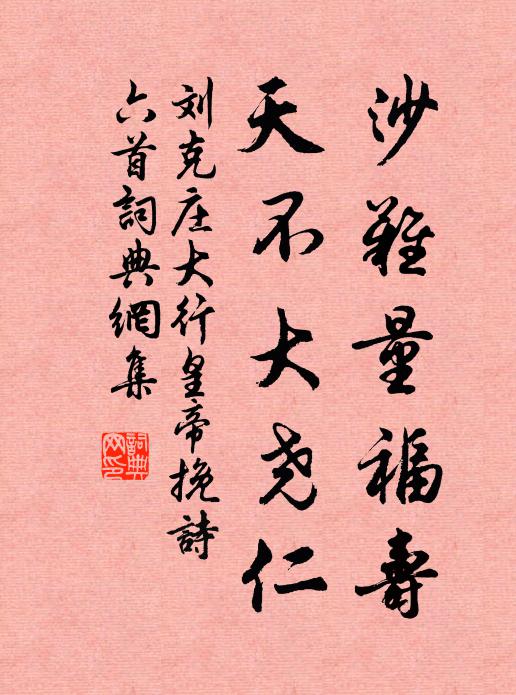 沙難量福壽
天不大尧仁
刘克庄大行皇帝挽詩
六首詞典網集
詞典網印